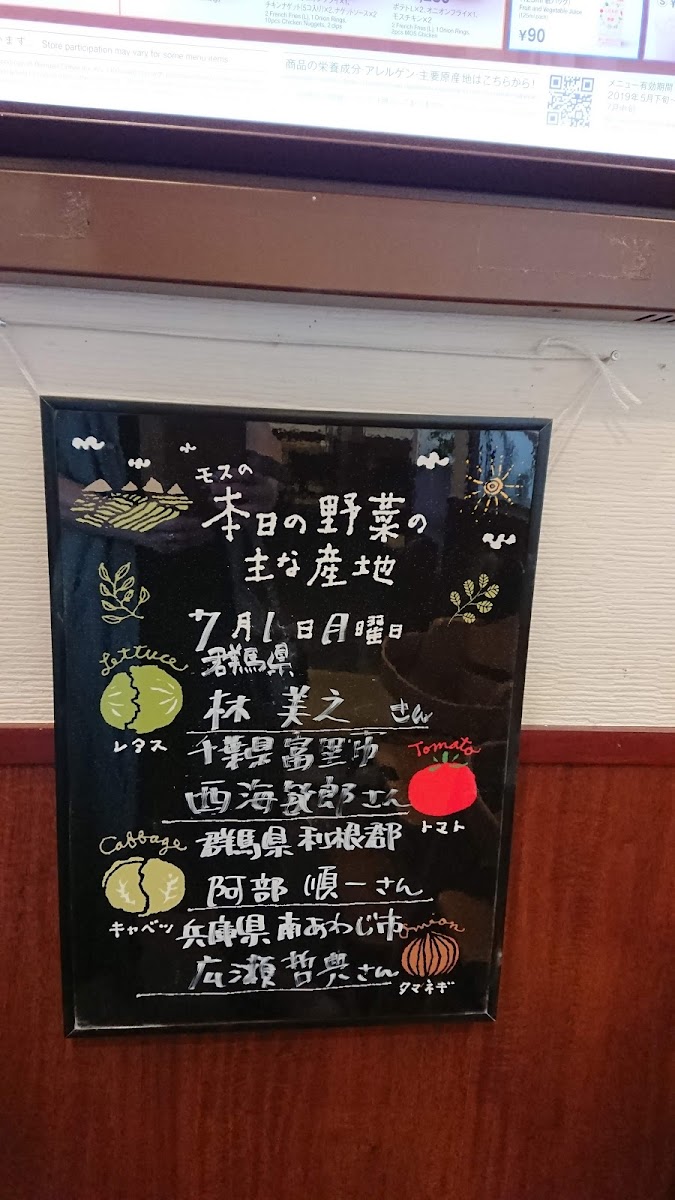 チキンナゲット(5コ入り)×2、ナゲットソース×2
2 French Fries (L), 1 Onion Rings,
10pcs Chicken Nuggets, 2 dips
ポテトL×2、オニオンフライ×1、
モスチキン×2
2 French Fries (L), 1 Onion Rings,
2pcs MOS Chicken
Fruit and Vegetable Juice
(125ml pack)
¥90
Store participation may vary for some menu items.
商品の栄養成分・アレルゲン・主要原産地はこちらから!
メニュー有効期間
2019年5月下旬～
7月中旬
モスの
本日の野菜の
主な産地
7月1日月曜日
群馬県
Lettuce
林 美之 さん
レタス
千葉県富里市
Tomato
西海敏郎さん
トマト
Cabbage
群馬県利根郡
阿部 順一さん
キャベツ
兵庫県南あわじ市
Onion
広瀬哲典さん
タマネギ